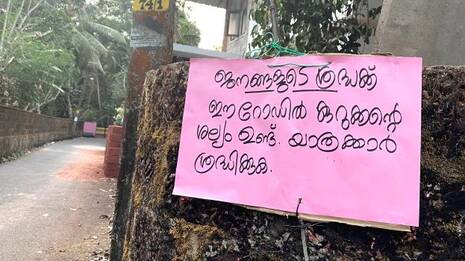 241
ജനങ്ങളുടെ ശ്രദ്ധക്ക്
ഈ റോഡിൽ കുറുക്കന്റെ
ശല്യം ഉണ്ട്. യാത്രക്കാർ
ശ്രദ്ധിക്കുക.